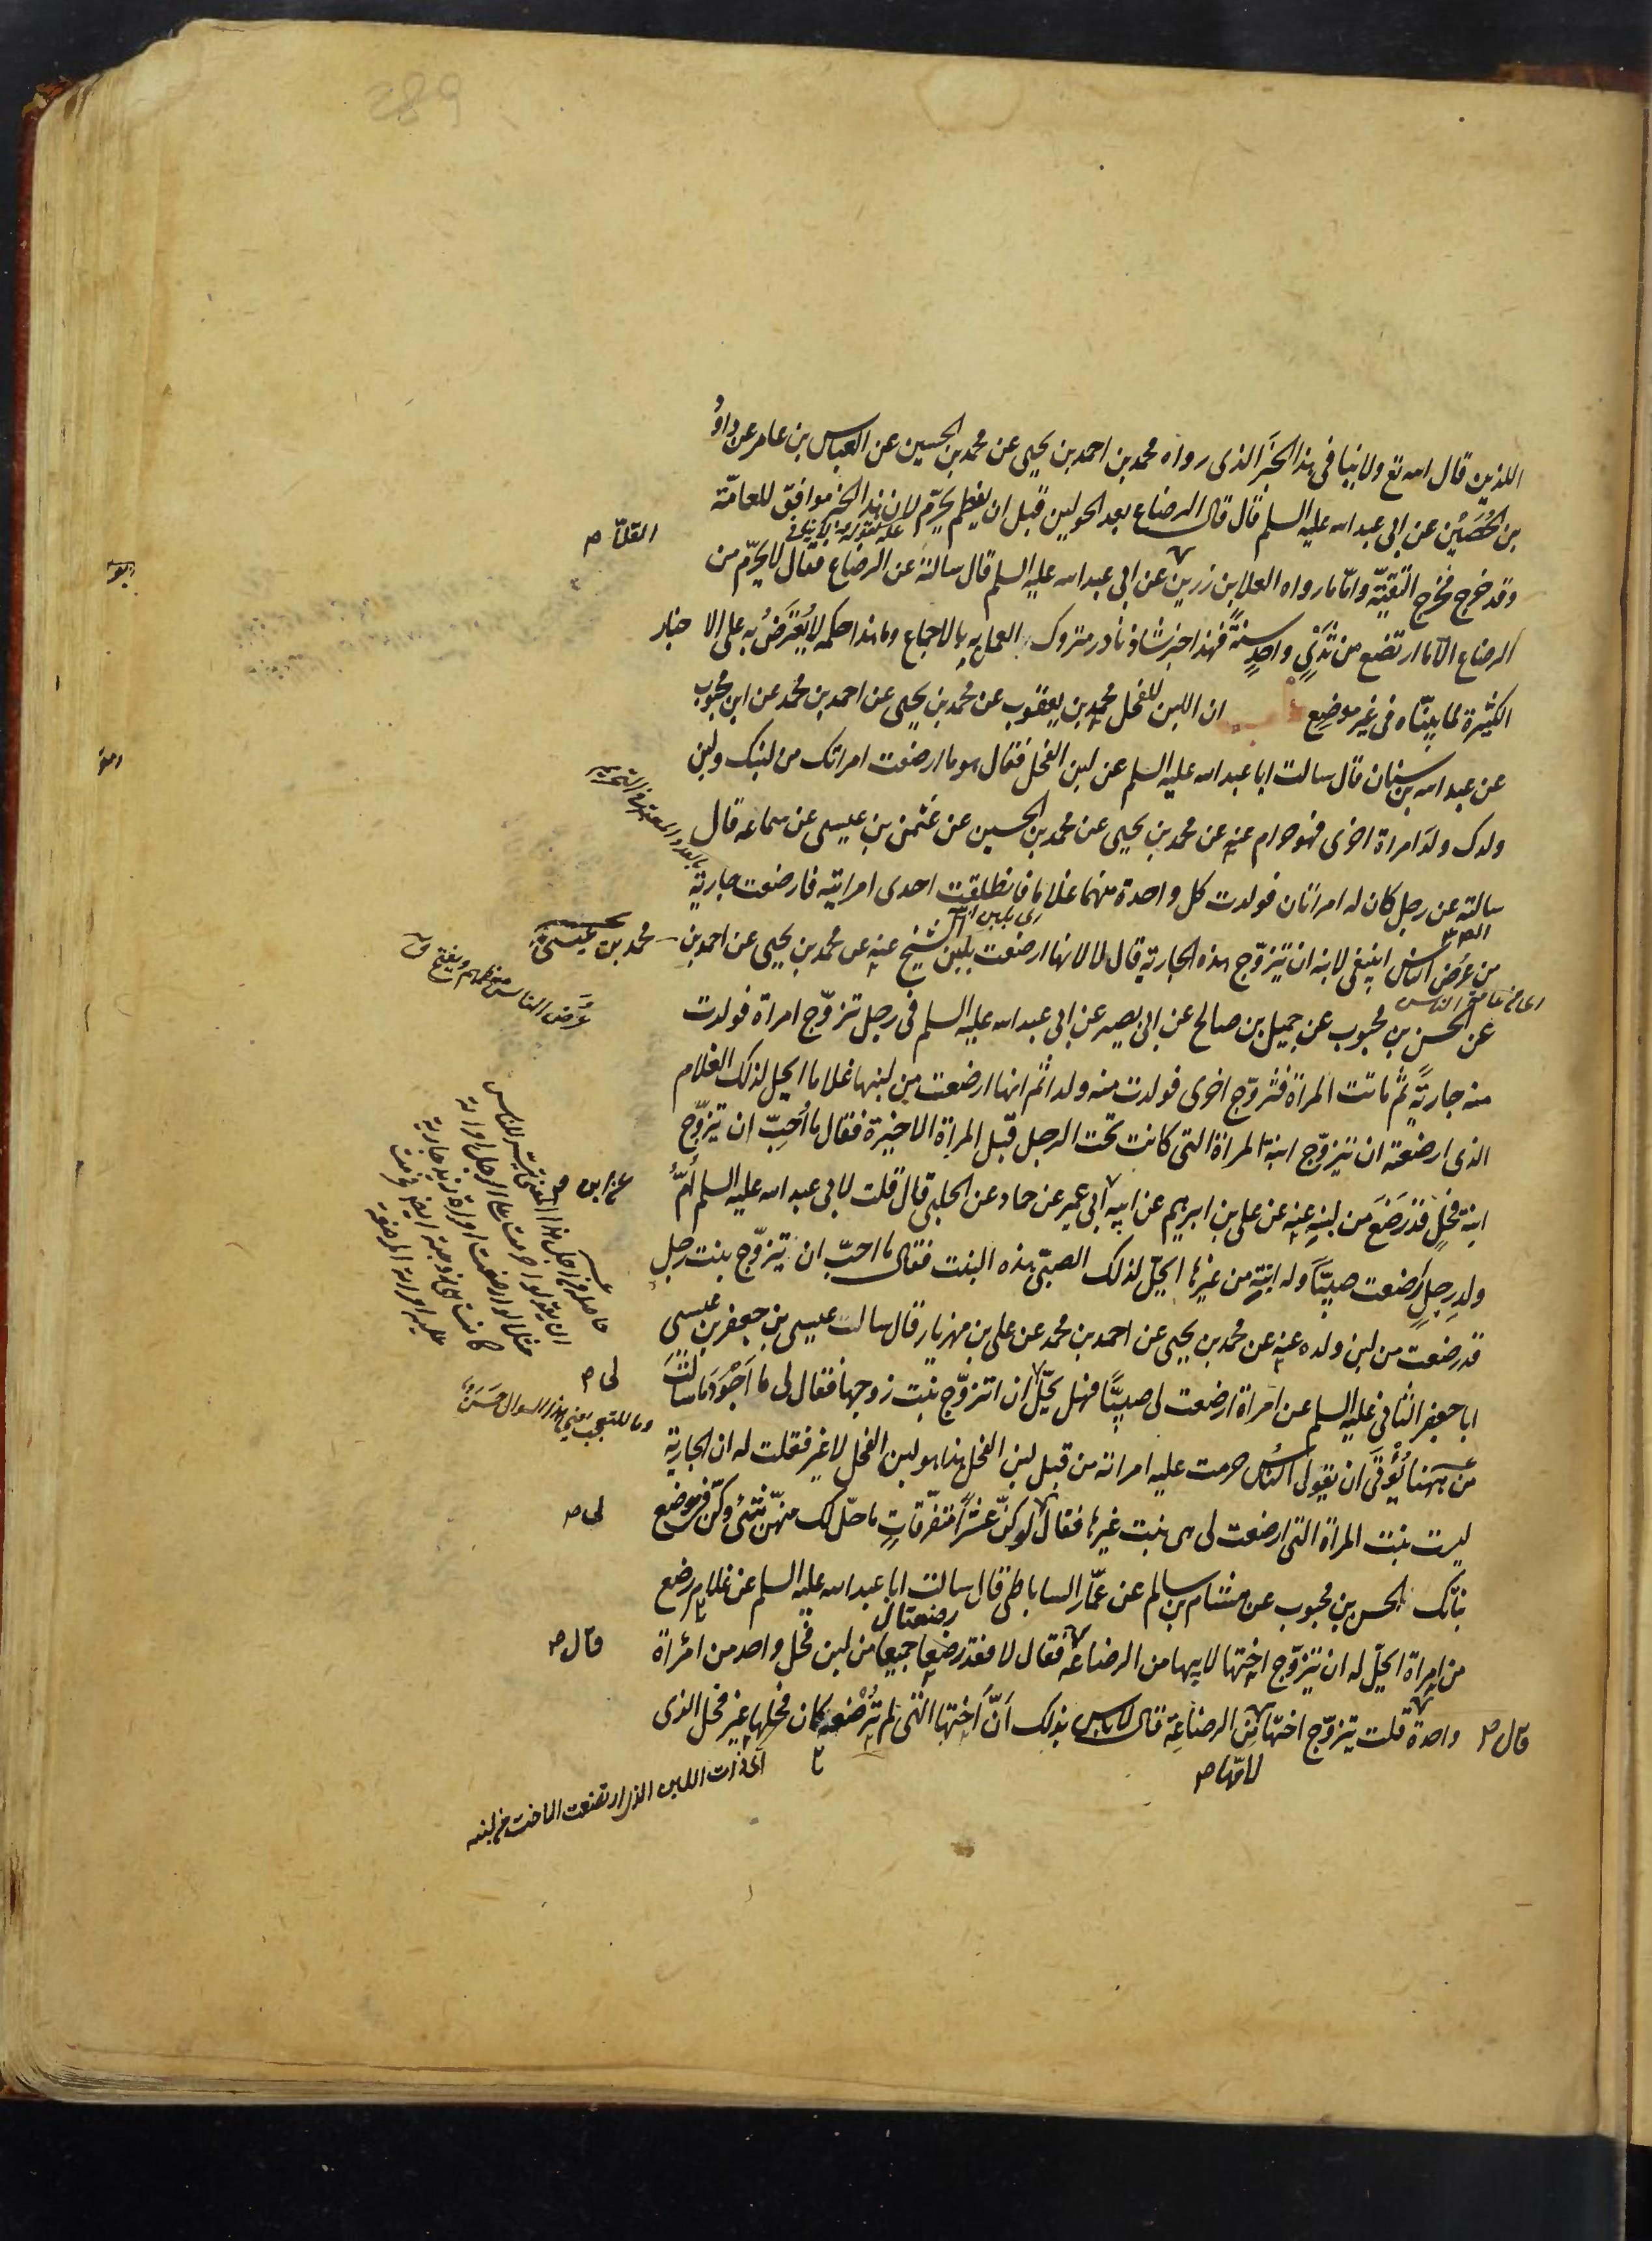 289
اللذين قال الله تع ولا ينافي هذا الخبر الذي رواه محمد بن احمد بن يحيى عن محمد بن الحسين عن العباس بن عامر عن داوُ
بن الحُصَيْن عن ابي عبد الله عليه السلم قال قال الرضاع بعد الحولين قبل ان يفطم يحرّم لان هذا الخبر موافق للعامّة
وقد خرج مخرج التقيّة وامّا ما رواه العلا بن رزين عن ابي عبد الله عليه السلم قال سالته عن الرضاع فقال لا يحرّم من
العلا صح
الرضاع الا ما ارتضع من ثَدْيٍ واحدٍ سنةً فهذا خبر شاذ نادر متروك العمل به بالاجماع وما هذا حكمه لا يُعْتَرَضُ به على الاخبار
الكثيرة لما بيّنّاه في غير موضِعٍ ان اللبن للفحل محمد بن يعقوب عن محمد بن يحيى عن احمد بن محمد عن ابن محبوب
عن عبد الله بن سنان قال سالت ابا عبد الله عليه السلم عن لبن الفحل فقال هو ما ارضعت امراتك من لبنك ولبن
ولدك ولدَ امراة اخرى فهو حرام عنه عن محمد بن يحيى عن محمد بن الحسين عن عثمن بن عيسى عن سماعه قال
سالته عن رجل كان له امراتان فولدت كل واحدة منهما غلاما فانطلقت احدى امراتيه فارضعت جارية
من عُرْض الناس اينبغي لابنه ان يتزوّج بهذه الجارية قال لا لانها ارضعت بلبن الشيخ عنه عن محمد بن يحيى عن احمد بن محمد بن عيسى
اى من عامة الناس
عُرْض الناس معظمهم ويفتح ق
عن الحسن بن محبوب عن جميل بن صالح عن ابي بصير عن ابي عبد الله عليه السلم في رجل تزوّج امراة فولدت
منه جاريةً ثم ماتت المراة فتزوّج اخرى فولدت منه ولدا ثم انها ارضعت من لبنها غلاما ايحل لذلك الغلام
الذي ارضعته ان يتزوّج ابنة المراة التي كانت تحت الرجل قبل المراة الاخيرة فقال ما اُحِبّ ان يتزوّج
ابنة فحلٍ قد رَضَعَ من لبنه عنه عن علي بن ابرهيم عن ابيه ابي عمير عن حماد عن الحلبي قال قلت لابي عبد الله عليه السلم اُمُّ
عن ابن صح
ولدِ رجلٍ ارضعت صبيّا وله ابنة من غيرها ايحلّ لذلك الصبيّ هذه البنت فقال ما احبّ ان يتزوّج بنت رجل
قد رضعت من لبن ولده عنه عن محمد بن يحيى عن احمد بن محمد عن علي بن مهزيار قال سالت عيسى بن جعفر بن عيسى
ابا جعفر الثاني عليه السلم عن امراة ارضعت لي صبيًّا فهل يحلّ ان اتزوّج بنت زوجها فقال لي ما اَجْوَدَ ما سالتَ
لى صح
وما للتعجب يعني هذا السوال حَسَنٌ
من ههنا يُؤْتَى ان يقول الناسُ حرمت عليه امراته من قبل لبن الفحل هذا هو لبن الفحل لا غير فقلت له ان الجارية
ليست بنت المراة التي ارضعت لي هي بنت غيرها فقال لو كنّ عَشْرًا متفرّقاتٍ ما حلّ لك منهنّ شئ وكنّ في موضع
لى صح
بناتك الحسن بن محبوب عن هشام بن سالم عن عمّار الساباطي قال سالت ابا عبد الله عليه السلم عن غلام رضع
من امراة ايحلّ له ان يتزوّج اختها لابيها من الرضاعة فقال لا فقد رضعا جميعا من لبن فحل واحد من امراة
قال صح
واحدة قلت يتزوّج اختها من الرضاعة قال لا باس بذلك اَنّ اُختها التي لم تُرْضعه كان فحلها غير فحل الذي
قال صح
لامّها صح